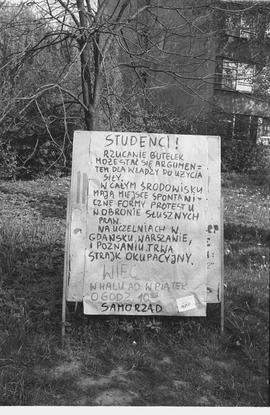 STUDENCI!
RZUCANIE BUTELEK
MOŻE STAĆ SIĘ ARGUMEN=
TEM DLA WŁADZY DO UŻYCIA
SIŁY.
W CAŁYM ŚRODOWISKU
MAJĄ MIEJSCE SPONTANI
CZNE FORMY PROTESTU
W OBRONIE SŁUSZNYCH
PRAW.
NA UCZELNIACH W
GDAŃSKU, WARSZAWIE,
I POZNANIU, TRWA
STRAJK OKUPACYJNY.
WIEC
W HALLU AD W PIĄTEK
O GODZ. 10
SAMORZĄD